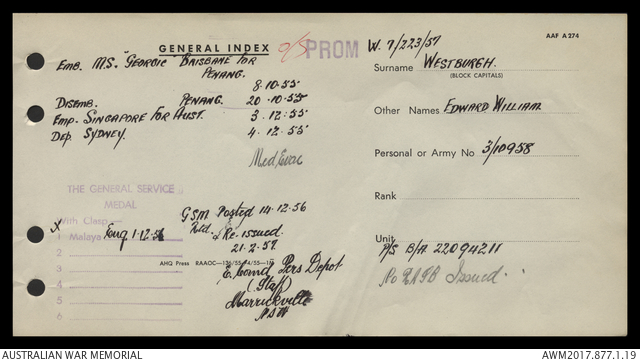 GENERAL INDEX
O/S PROM
W. 7/223/57
AAF A 274
EMB. M.S. "GEORGIC" BRISBANE FOR
PENANG.
8.10.55
DISEMB. PENANG. 20.10.55
EMP. SINGAPORE FOR AUST. 3.12.55
DEP. SYDNEY. 4.12.55
Med Evac
Surname WESTBURGH.
(BLOCK CAPITALS)
Other Names EDWARD WILLIAM
Personal or Army No 3/10958
Rank
Unit
P/S B/A 22094211
No RASB Issued.
THE GENERAL SERVICE
MEDAL
With Clasp—
x 1 Malaya Enq 1.12.56
2
3
4
5
6
GSM Posted 14.12.56
Retd. & Re-issued.
21.2.57
AHQ Press RAAOC
E. Comd Pers Depot
(Staff)
Marrickville
NSW
AUSTRALIAN WAR MEMORIAL
AWM2017.877.1.19